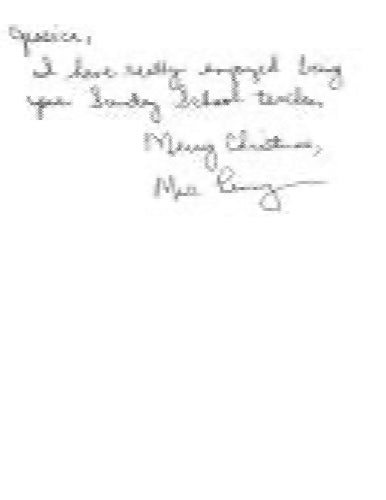 I have really enjoyed being
your Sunday School teacher.
Merry Christmas,